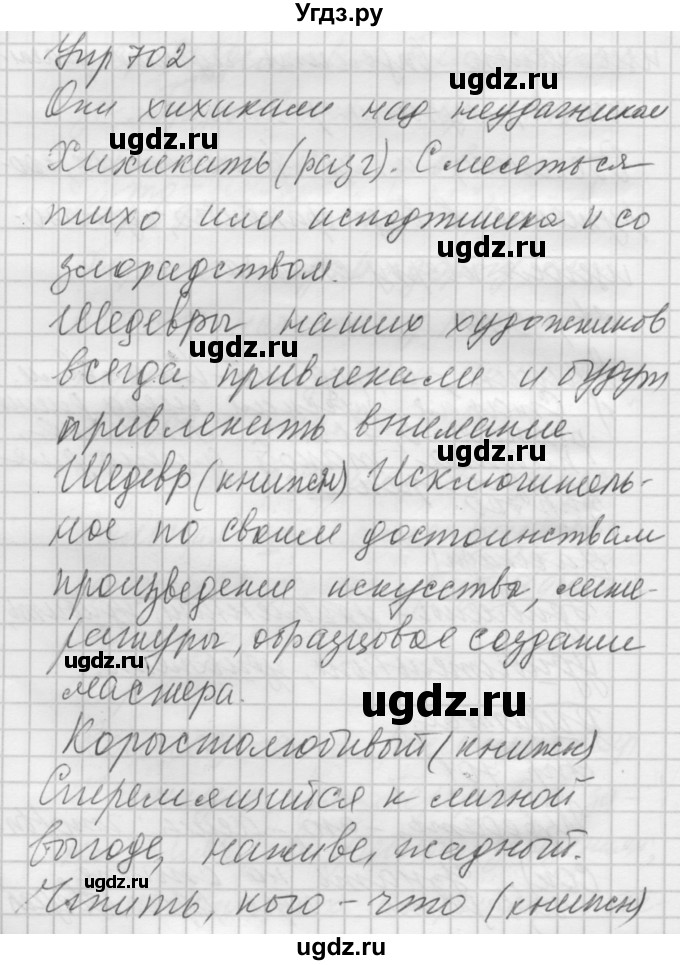 Угдз.ру
Упр 702
Они хихикали над неудачником
ugdz.ru
Хихикать (разг). Смеяться
тихо или исподтишка и со
ugdz.ru
злорадством.
Шедевры наших художников
ugdz.ru
всегда привлекали и будут
привлекать внимание
ugdz.ru
Шедевр (книжн) Исключитель-
ное по своим достоинствам
произведение искусства, лите-
ратуры, образцовое создание
ugdz.ru
мастера.
ugdz.ru
Корыстолюбивый (книжн)
Стремящийся к личной
выгоде, наживе, жадный.
ugdz.ru
Чтить, кого-что (книжн)
ugdz.ru